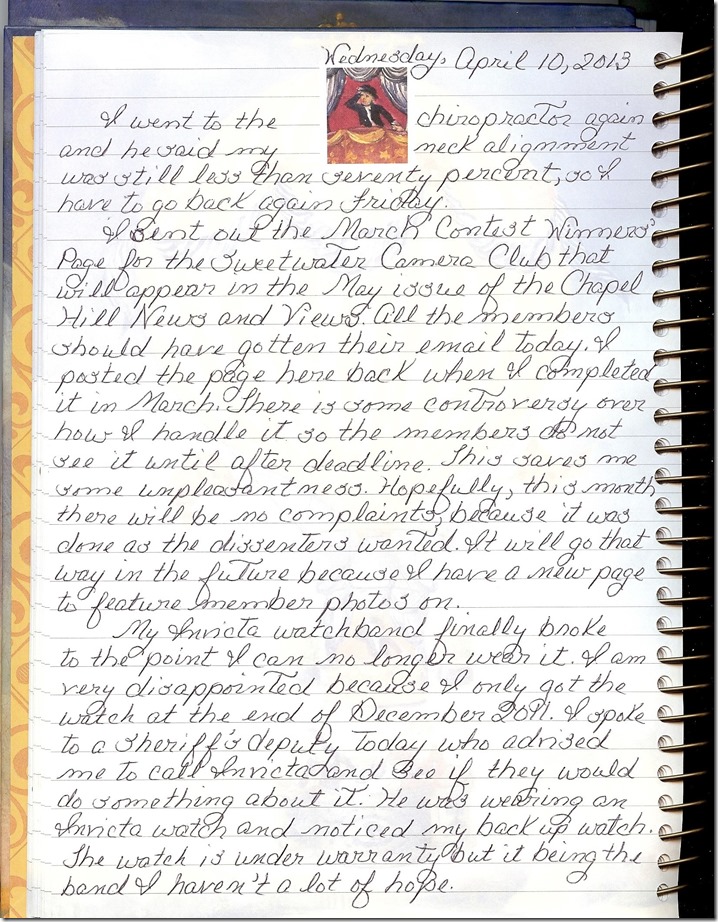 Wednesday, April 10, 2013
I went to the chiropractor again
and he said my neck alignment
was still less than seventy percent, so I
have to go back again Friday.
I sent out the March Contest Winners'
Page for the Sweetwater Camera Club that
will appear in the May issue of the Chapel
Hill News and Views. All the members
should have gotten their email today. I
posted the page here back when I completed
it in March. There is some controversy over
how I handle it so the members do not
see it until after deadline. This saves me
some unpleasantness. Hopefully, this month
there will be no complaints, because it was
done as the dissenters wanted. It will go that
way in the future because I have a new page
to feature member photos on.
My Invicta watchband finally broke
to the point I can no longer wear it. I am
very disappointed because I only got the
watch at the end of December 2011. I spoke
to a sheriff's deputy today who advised
me to call Invicta and see if they would
do something about it. He was wearing an
Invicta watch and noticed my back up watch.
The watch is under warranty but it being the
band I haven't a lot of hope.